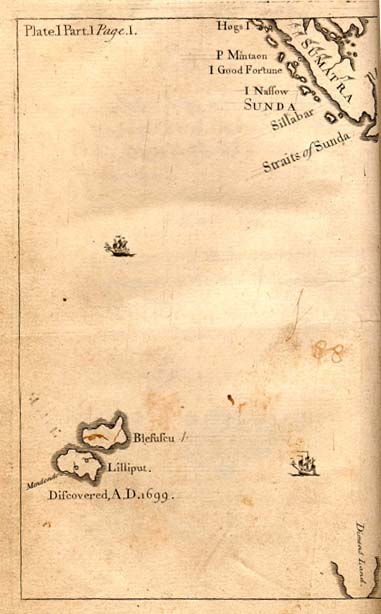 Plate.I Part.I Page.I.
Hogs I
SUMATRA
P Mintaon
I Good Fortune
I Naſſow
SUNDA
Sillabar
Straits of Sunda
88
Blefuſcu
Lilliput.
Mendendo
Diſcovered, A.D. 1699.
Dimens Land.